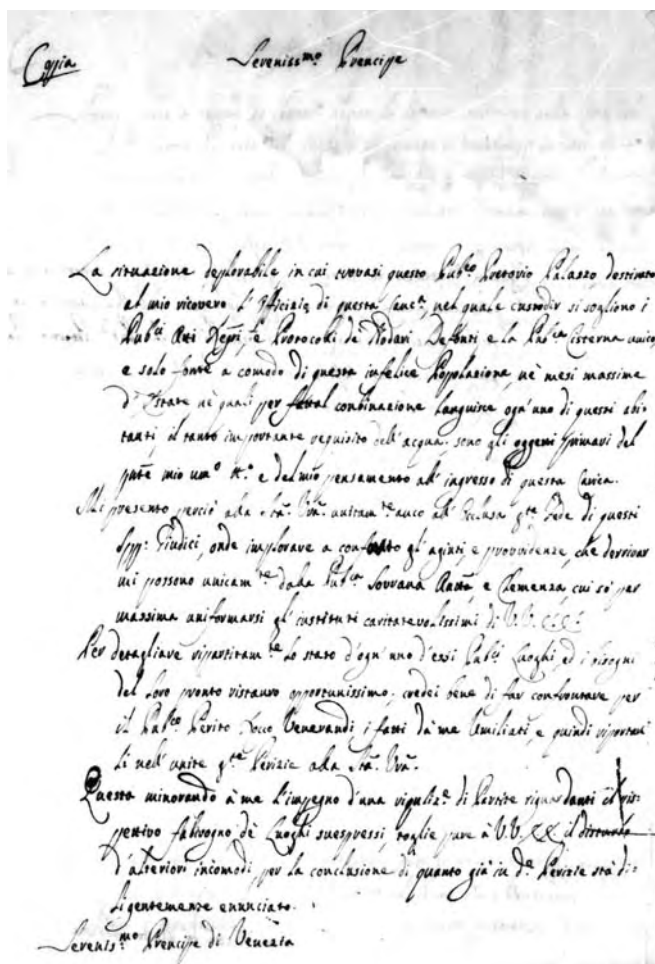 Copia
Sereniss.mo Prencipe
La situazione deplorabile in cui trovasi questo Pub.co Pretorio Palazzo destinato
al mio ricovero l'Officiale di questa Canc.a, nel quale custodir si sogliono i
Pub.ci Atti, e Protocolli de Nodari Defonti e la Pub.ca Cisterna unico,
e solo fonte a comodo di questa infelice Popolazione, nè mesi massime
d'Estate nè quali per fatal combinazione languisce ogn'uno di questi abi-
tanti, il tanto importante requisito dell'acqua, sono gli oggetti primari del
mio um.o e del mio pensamento all'ingresso di questa Carica.
Mi presento perciò alla unitam.te anco all' fede di questi
Giudici, onde implorare a conforto gl'aginti, e provvidenze, che derrivar
mi possono unicam.te dalla Pub.ca Sovrana e Clemenza, cui sò per
massima uniformarsi gl'instituti caritatevolissimi di V.V.
Per detagliare ripartitam.te lo stato d'ogn'uno d'essi Pub.ci Luoghi, ed i bisogni
del loro pronto ristauro opportunissimo, credei bene di far confrontare per
il Pub.co Perito Venerandi, i fatti dà me Umiliati, e quindi riportar-
li nell'unite Perizie alla
Questa minorando à me l'impegno d'una di Partite riguardanti il ris-
pettivo fabisogno dè Luoghi suespressi, toglie pure à V.V. il disturbo
d'ulteriori incomodi per la conclusione di quanto già in d.e Perizie stà di-
ligentemente enunciato.
Serenis.mo Prencipe di Venezia